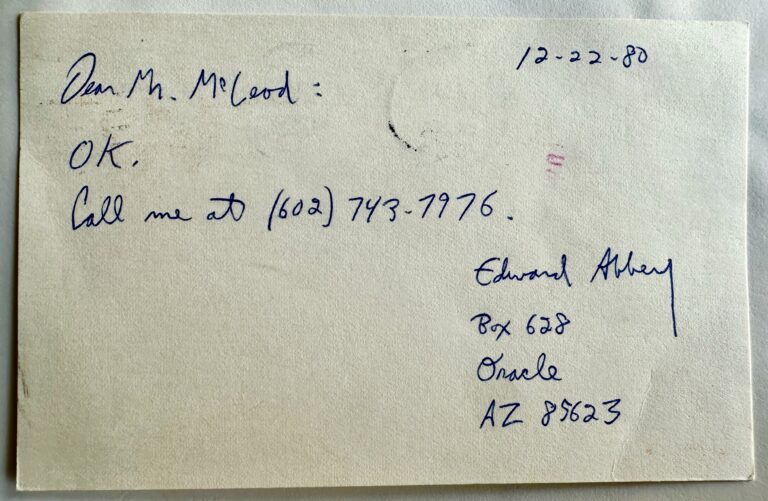 12-22-80
Dear Mr. McLeod:
OK.
Call me at (602) 743-7976.
Edward Abbey
Box 628
Oracle
AZ 85623